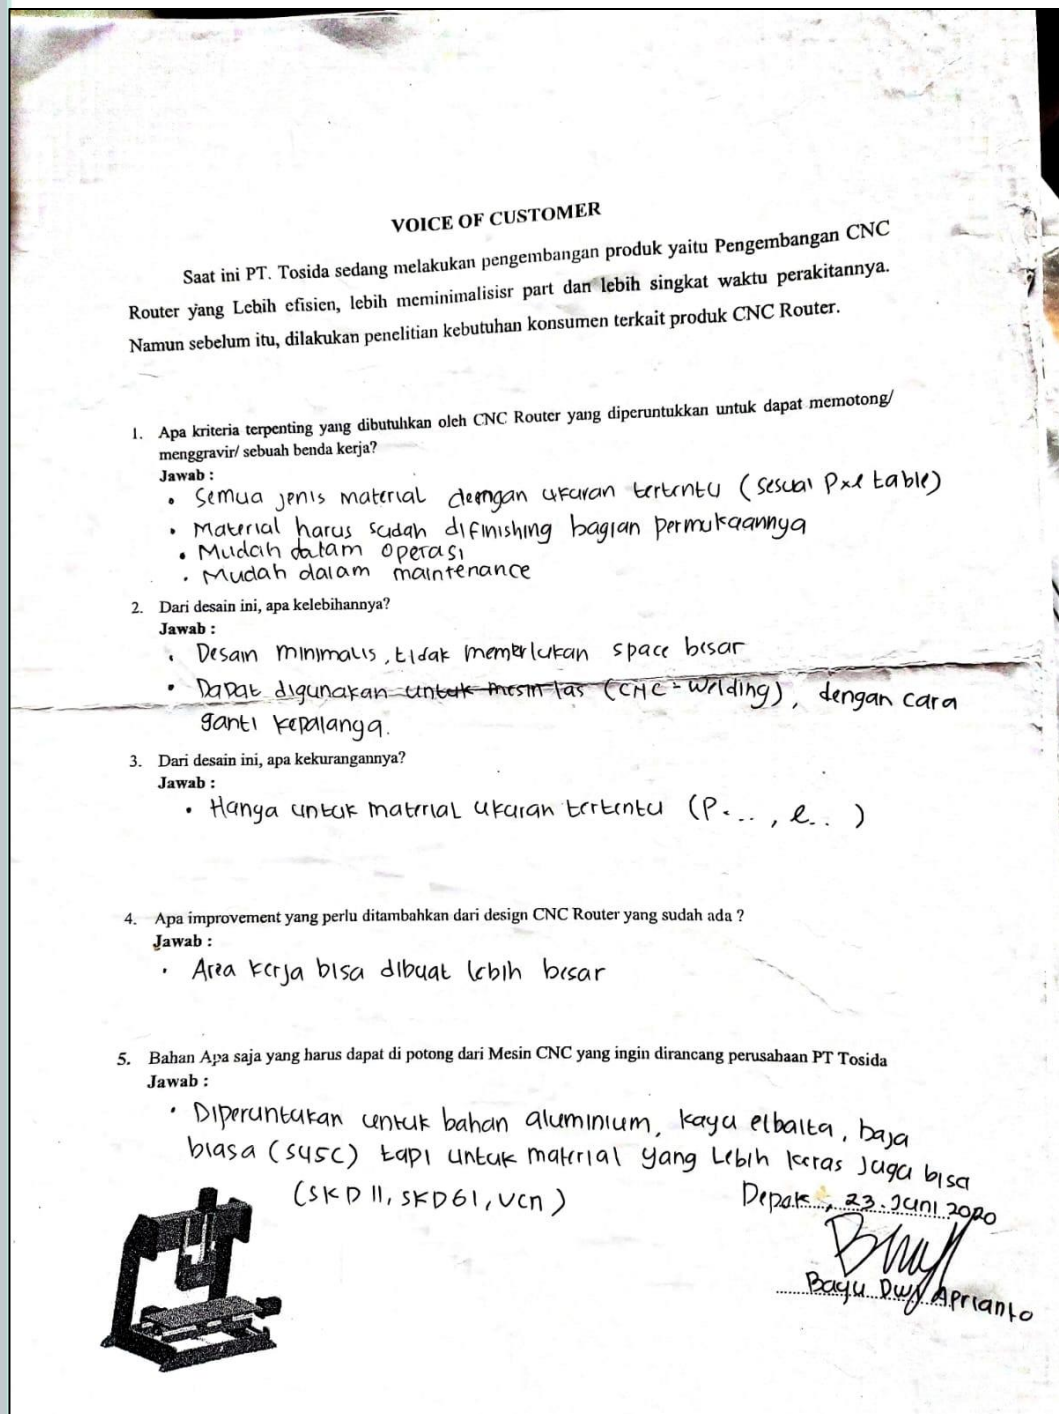 VOICE OF CUSTOMER
Saat ini PT. Tosida sedang melakukan pengembangan produk yaitu Pengembangan CNC
Router yang Lebih efisien, lebih meminimalisisr part dan lebih singkat waktu perakitannya.
Namun sebelum itu, dilakukan penelitian kebutuhan konsumen terkait produk CNC Router.
1. Apa kriteria terpenting yang dibutuhkan oleh CNC Router yang diperuntukkan untuk dapat memotong/
menggravir/ sebuah benda kerja?
Jawab :
• Semua jenis material dengan ukuran tertentu (sesuai Pxl table)
• Material harus sudah difinishing bagian permukaannya
• Mudah dalam operasi
• Mudah dalam maintenance
2. Dari desain ini, apa kelebihannya?
Jawab :
• Desain minimalis, tidak memerlukan space besar
• Dapat digunakan untuk mesin las (CNC-Welding), dengan cara
ganti kepalanya.
3. Dari desain ini, apa kekurangannya?
Jawab :
• Hanya untuk material ukuran tertentu (P..., l...)
4. Apa improvement yang perlu ditambahkan dari design CNC Router yang sudah ada ?
Jawab :
• Area kerja bisa dibuat lebih besar
5. Bahan Apa saja yang harus dapat di potong dari Mesin CNC yang ingin dirancang perusahaan PT Tosida
Jawab :
• Diperuntukan untuk bahan aluminium, kayu elbalta, baja
biasa (S45C) tapi untuk material yang lebih keras juga bisa
(SKD 11, SKD61, VCN)
Depok, 23 Juni 2020
Bayu Dwi Aprianto